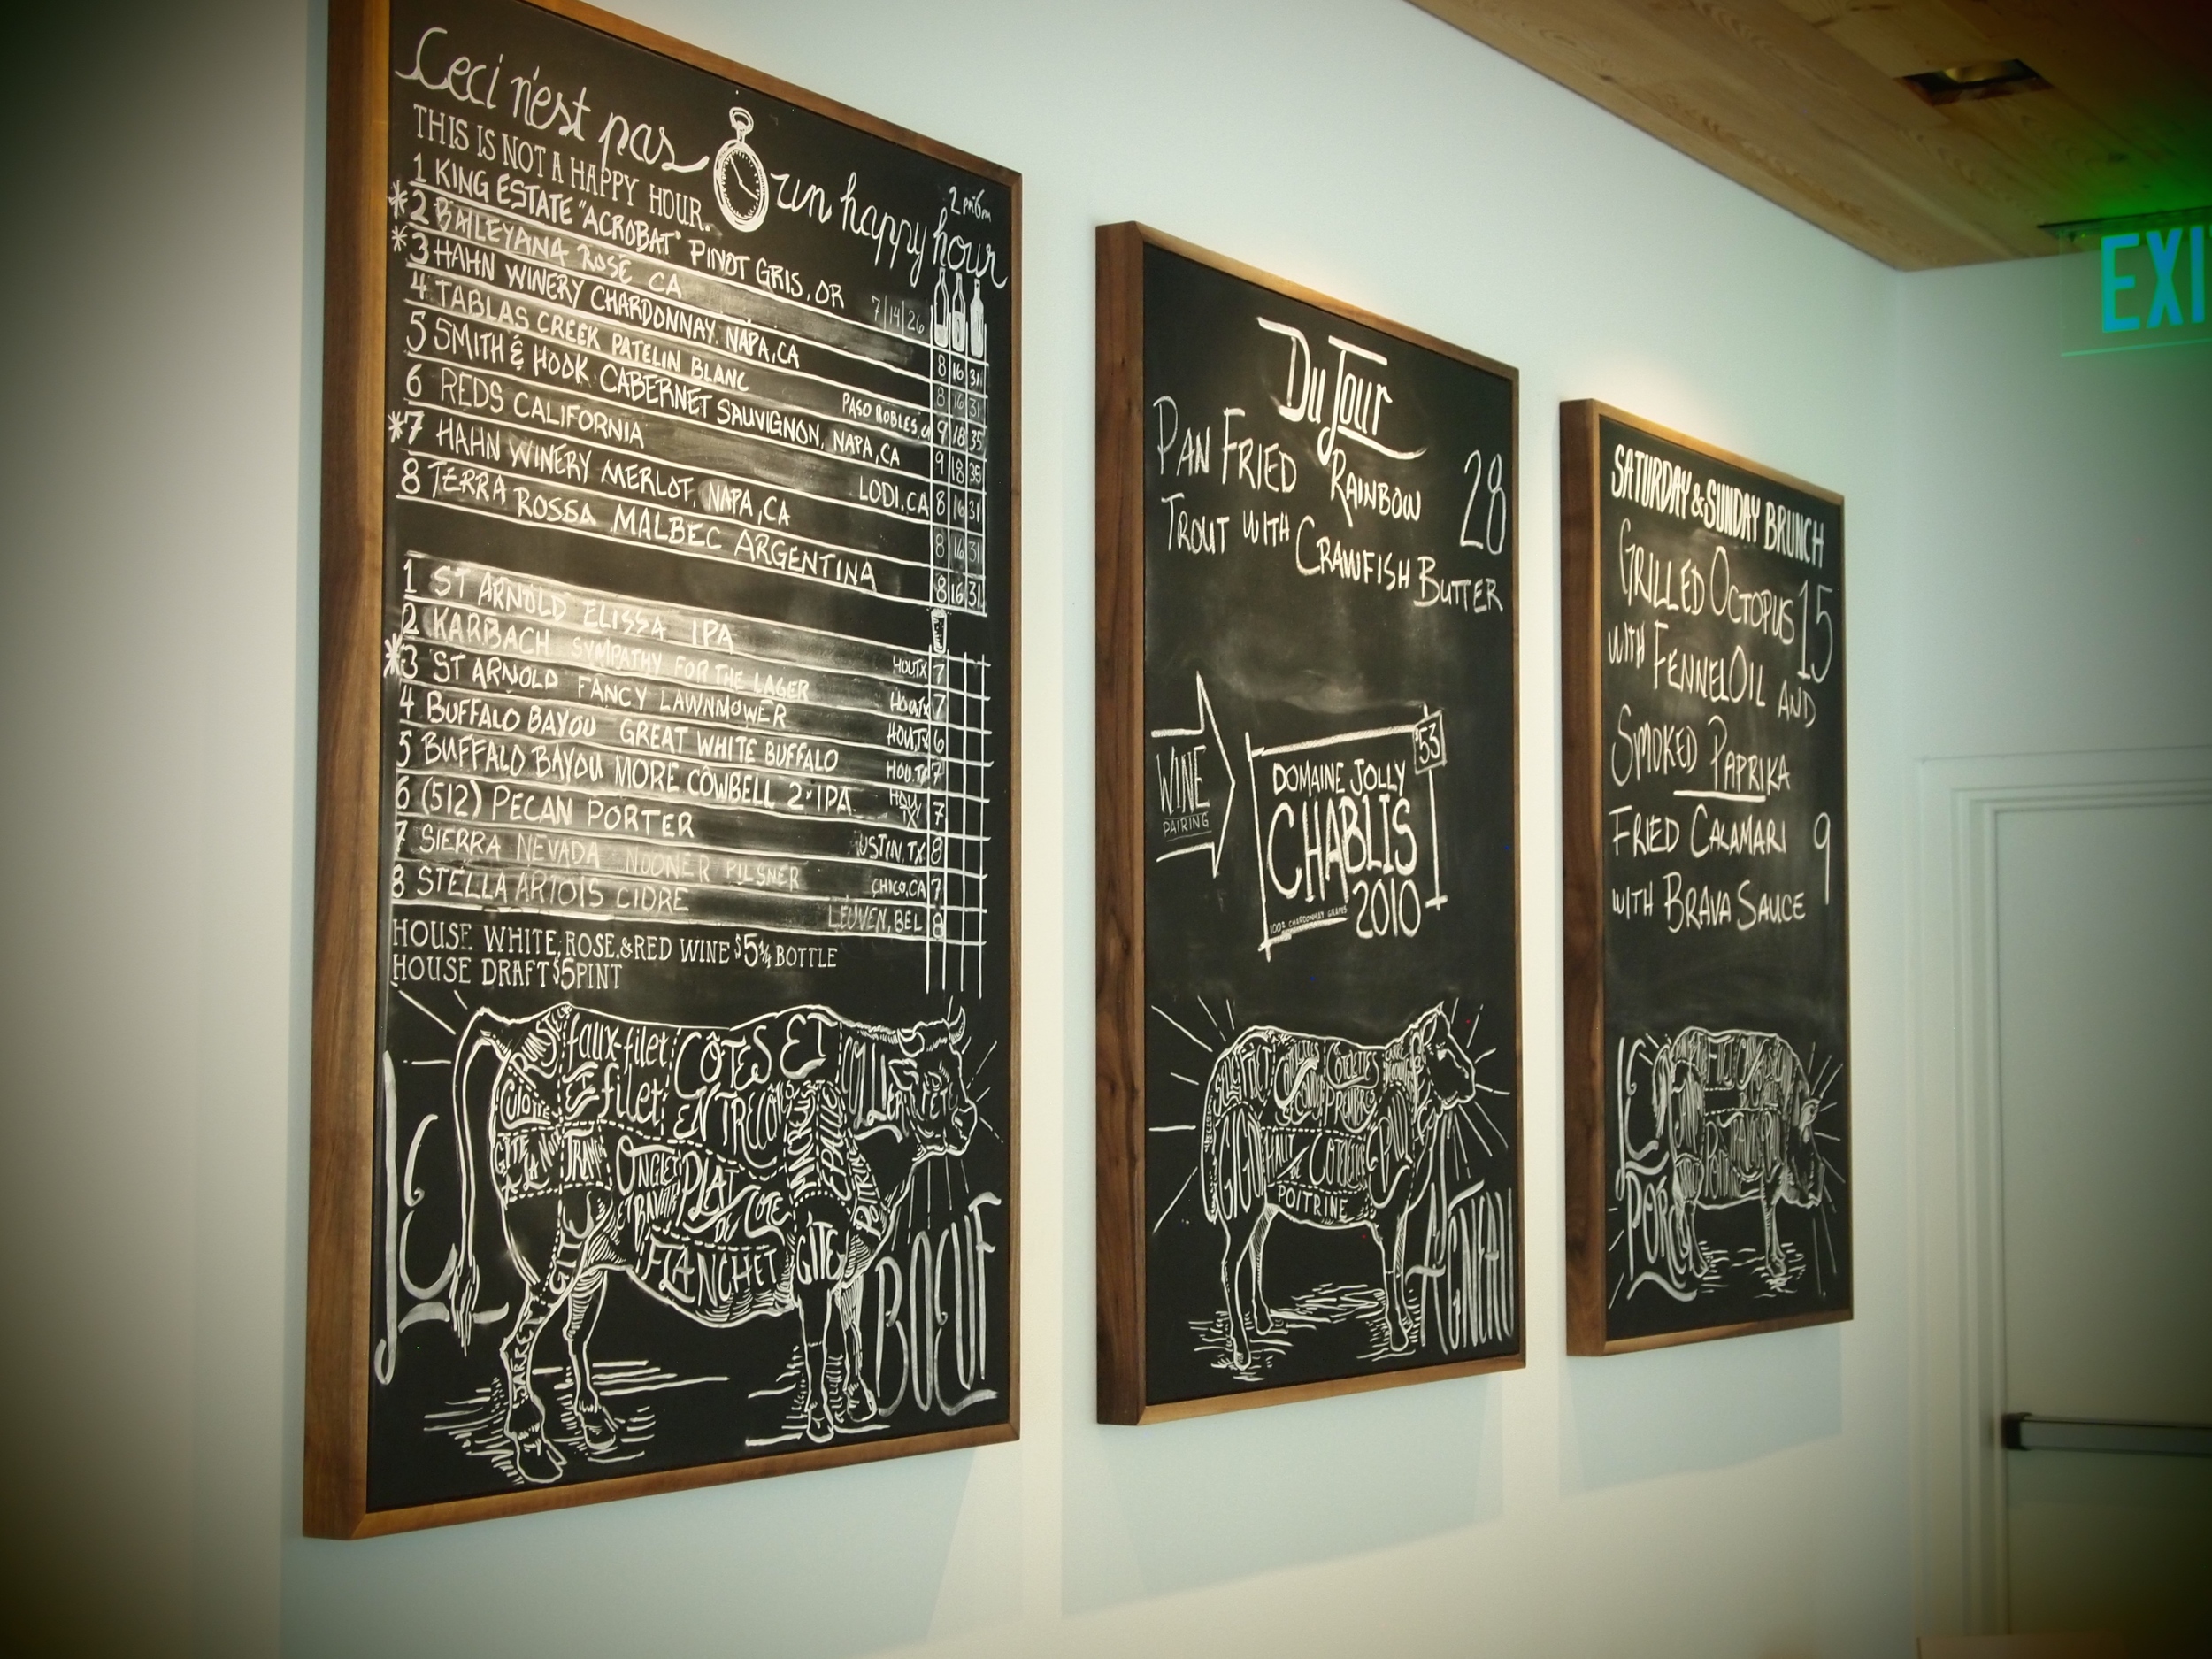 Ceci n'est pas un happy hour
2pm-6pm
THIS IS NOT A HAPPY HOUR.
1 KING ESTATE "ACROBAT" PINOT GRIS, OR 7 14 26
*2 BAILEYANA ROSE CA 8 16 31
*3 HAHN WINERY CHARDONNAY. NAPA, CA 8 16 31
4 TABLAS CREEK PATELIN BLANC PASO ROBLES, CA 9 18 35
5 SMITH & HOOK CABERNET SAUVIGNON, NAPA, CA 9 18 35
6 REDS CALIFORNIA LODI, CA 8 16 31
*7 HAHN WINERY MERLOT, NAPA, CA 8 16 31
8 TERRA ROSSA MALBEC ARGENTINA 8 16 31
1 ST ARNOLD ELISSA IPA HOU,TX 7
2 KARBACH SYMPATHY FOR THE LAGER HOU,TX 7
*3 ST ARNOLD FANCY LAWNMOWER HOU,TX 6
4 BUFFALO BAYOU GREAT WHITE BUFFALO HOU,TX 7
5 BUFFALO BAYOU MORE COWBELL 2×IPA HOU TX 7
6 (512) PECAN PORTER USTIN, TX 8
7 SIERRA NEVADA NOONER PILSNER CHICO, CA 7
8 STELLA ARTOIS CIDRE LEUVEN, BEL 8
HOUSE WHITE, ROSE, & RED WINE $5 1/4 BOTTLE
HOUSE DRAFT $5 PINT
faux-filet CÔTES ET COLLIER
& filet ENTRECÔTES
CULOTTE
TRANCHE ONGLET PLAT DE CÔTE
BAVETTE
FLANCHET GITE
GITE
JARRET
LE BOEUF
Du Jour
PAN FRIED RAINBOW 28
TROUT WITH CRAWFISH BUTTER
WINE
PAIRING
$53
DOMAINE JOLLY
CHABLIS
2010
100% CHARDONNAY GRAPES
POITRINE
AGNEAU
SATURDAY & SUNDAY BRUNCH
GRILLED OCTOPUS 15
WITH FENNEL OIL AND
SMOKED PAPRIKA
FRIED CALAMARI 9
WITH BRAVA SAUCE
LE
PORC
EXI